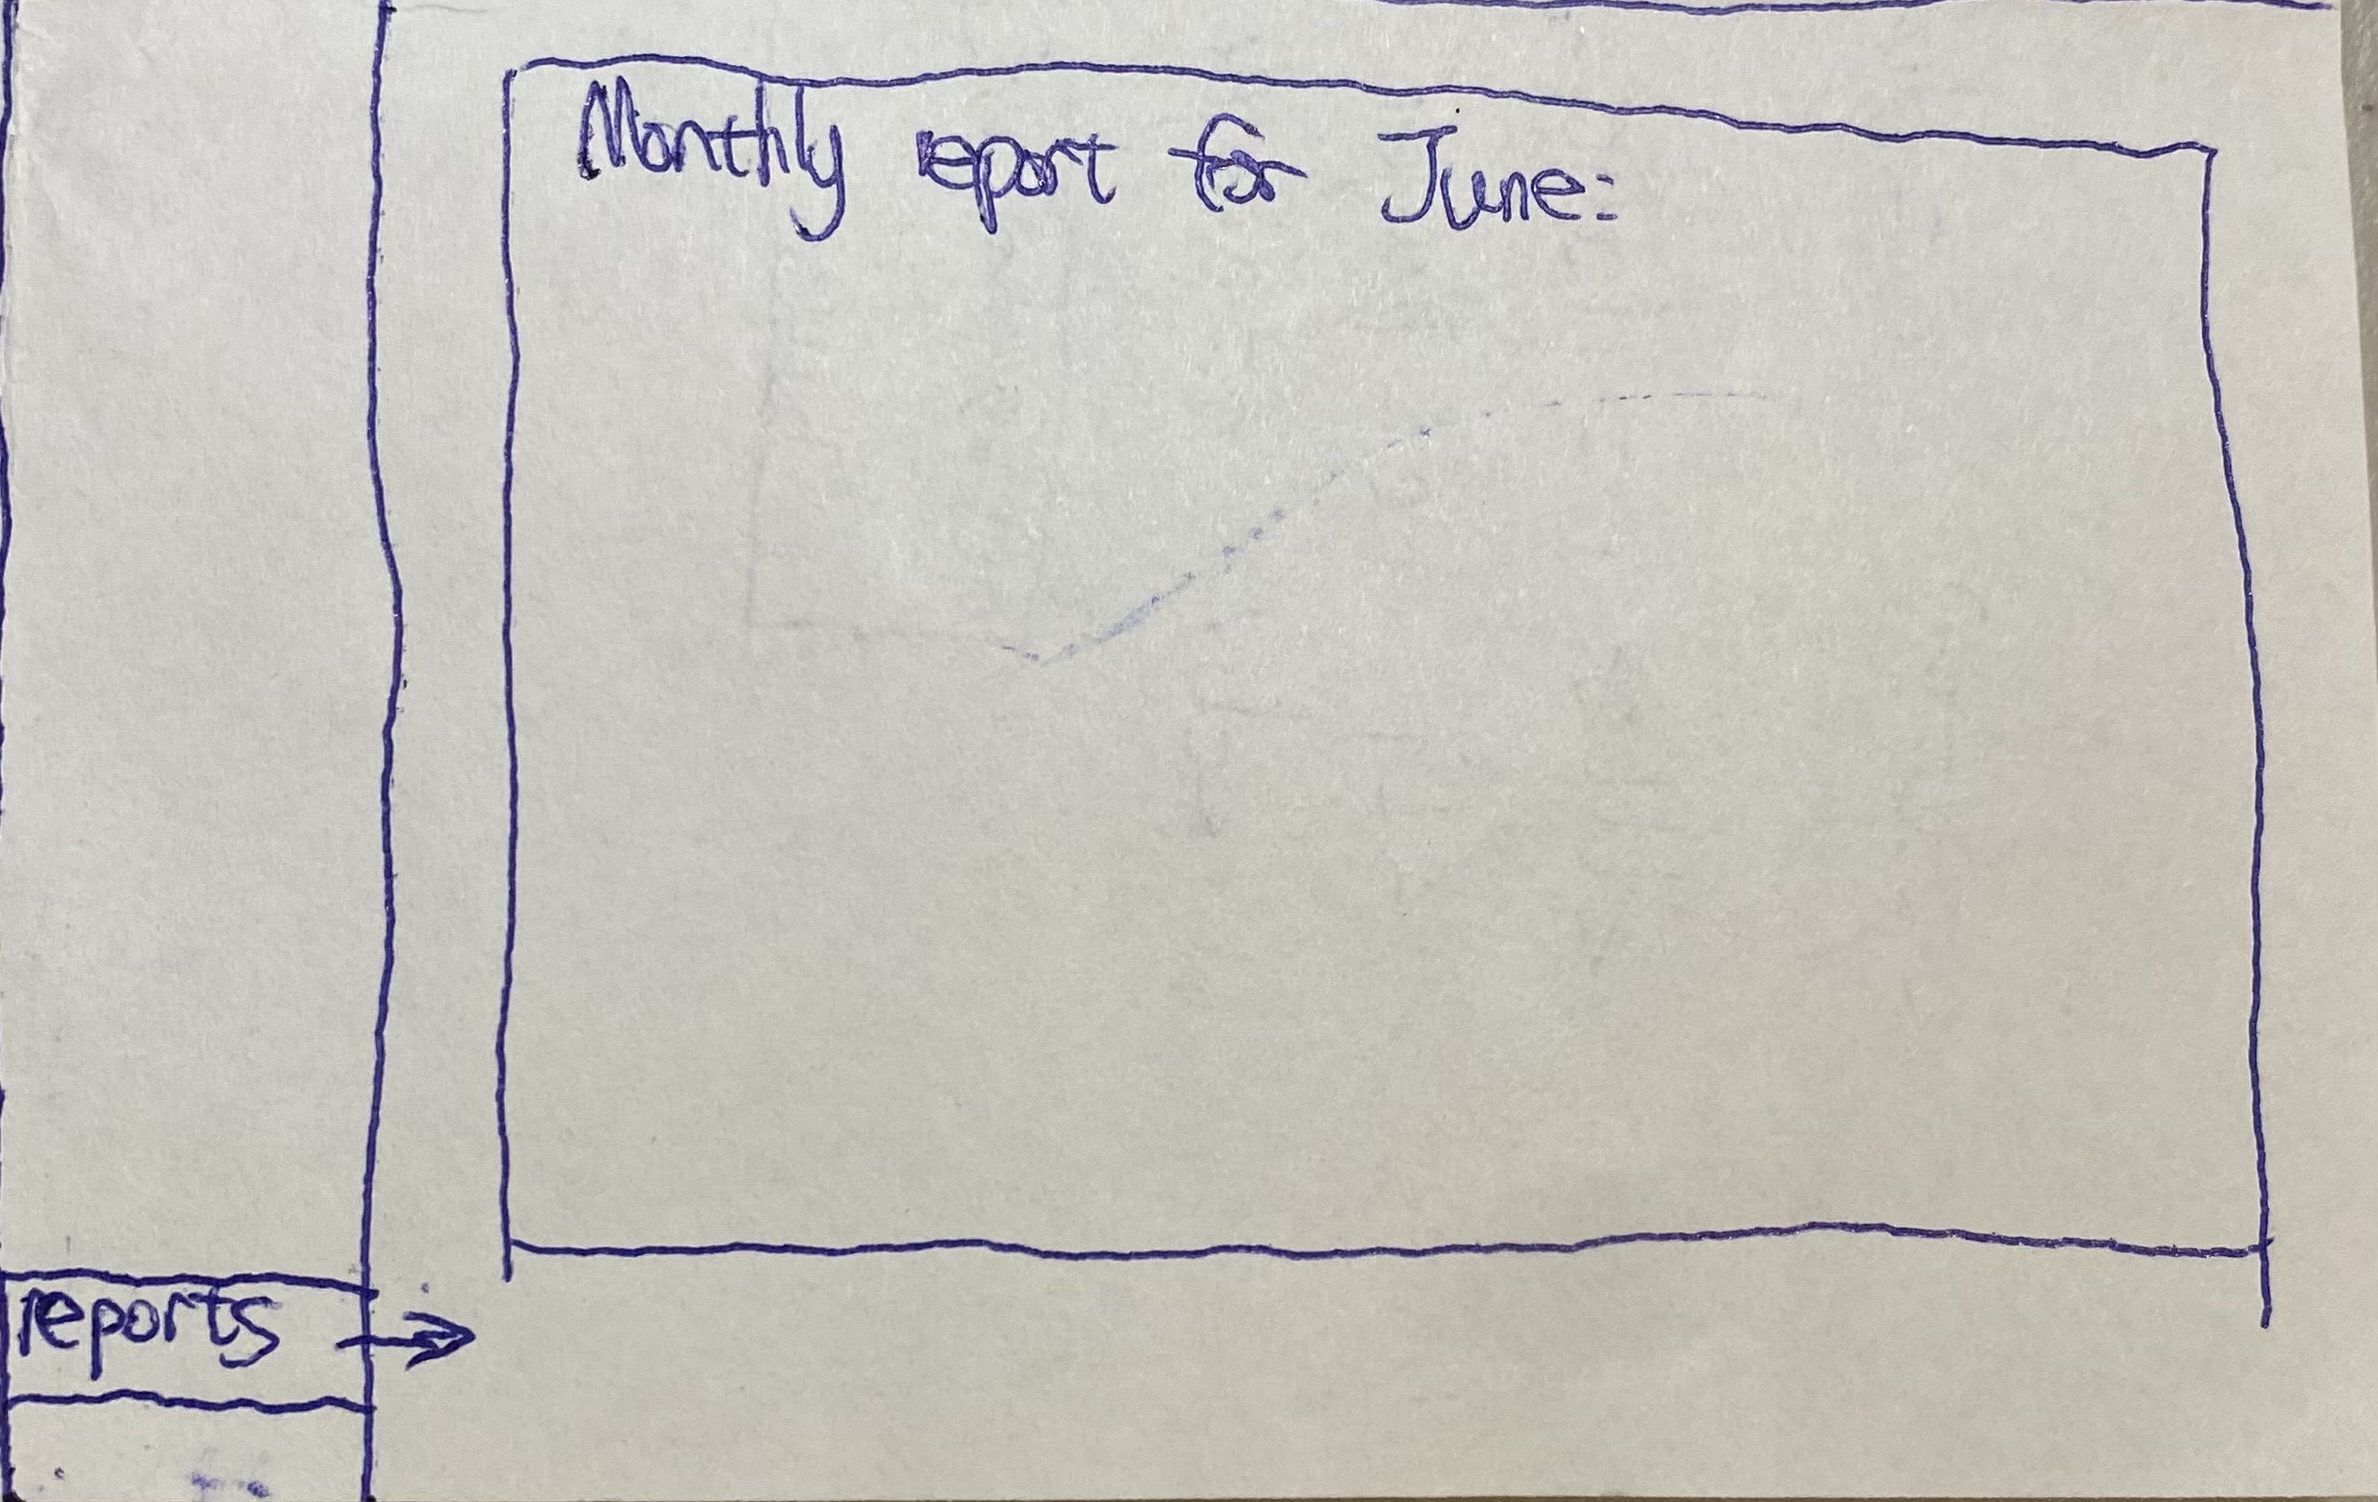 Monthly report for June:
reports